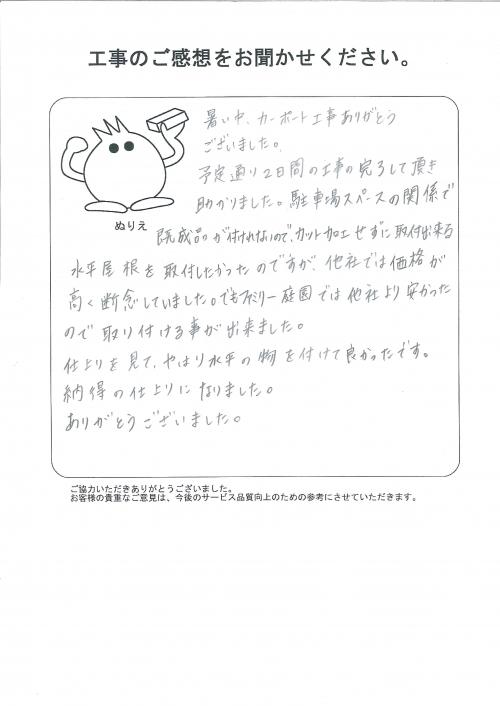 工事のご感想をお聞かせください。
暑い中、カーポート工事ありがとう
ございました。
予定通り2日間の工事の完了して頂き
助かりました。駐車場スペースの関係で
ぬりえ
既成品が付けれないので、カット加工せずに取付出来る
水平屋根を取付したかったのですが、他社では価格が
高く断念していました。でもファミリー庭園では他社より安かった
ので取り付ける事が出来ました。
仕上りを見て、やはり水平の物を付けて良かったです。
納得の仕上りになりました。
ありがとうございました。
ご協力いただきありがとうございました。
お客様の貴重なご意見は、今後のサービス品質向上のための参考にさせていただきます。